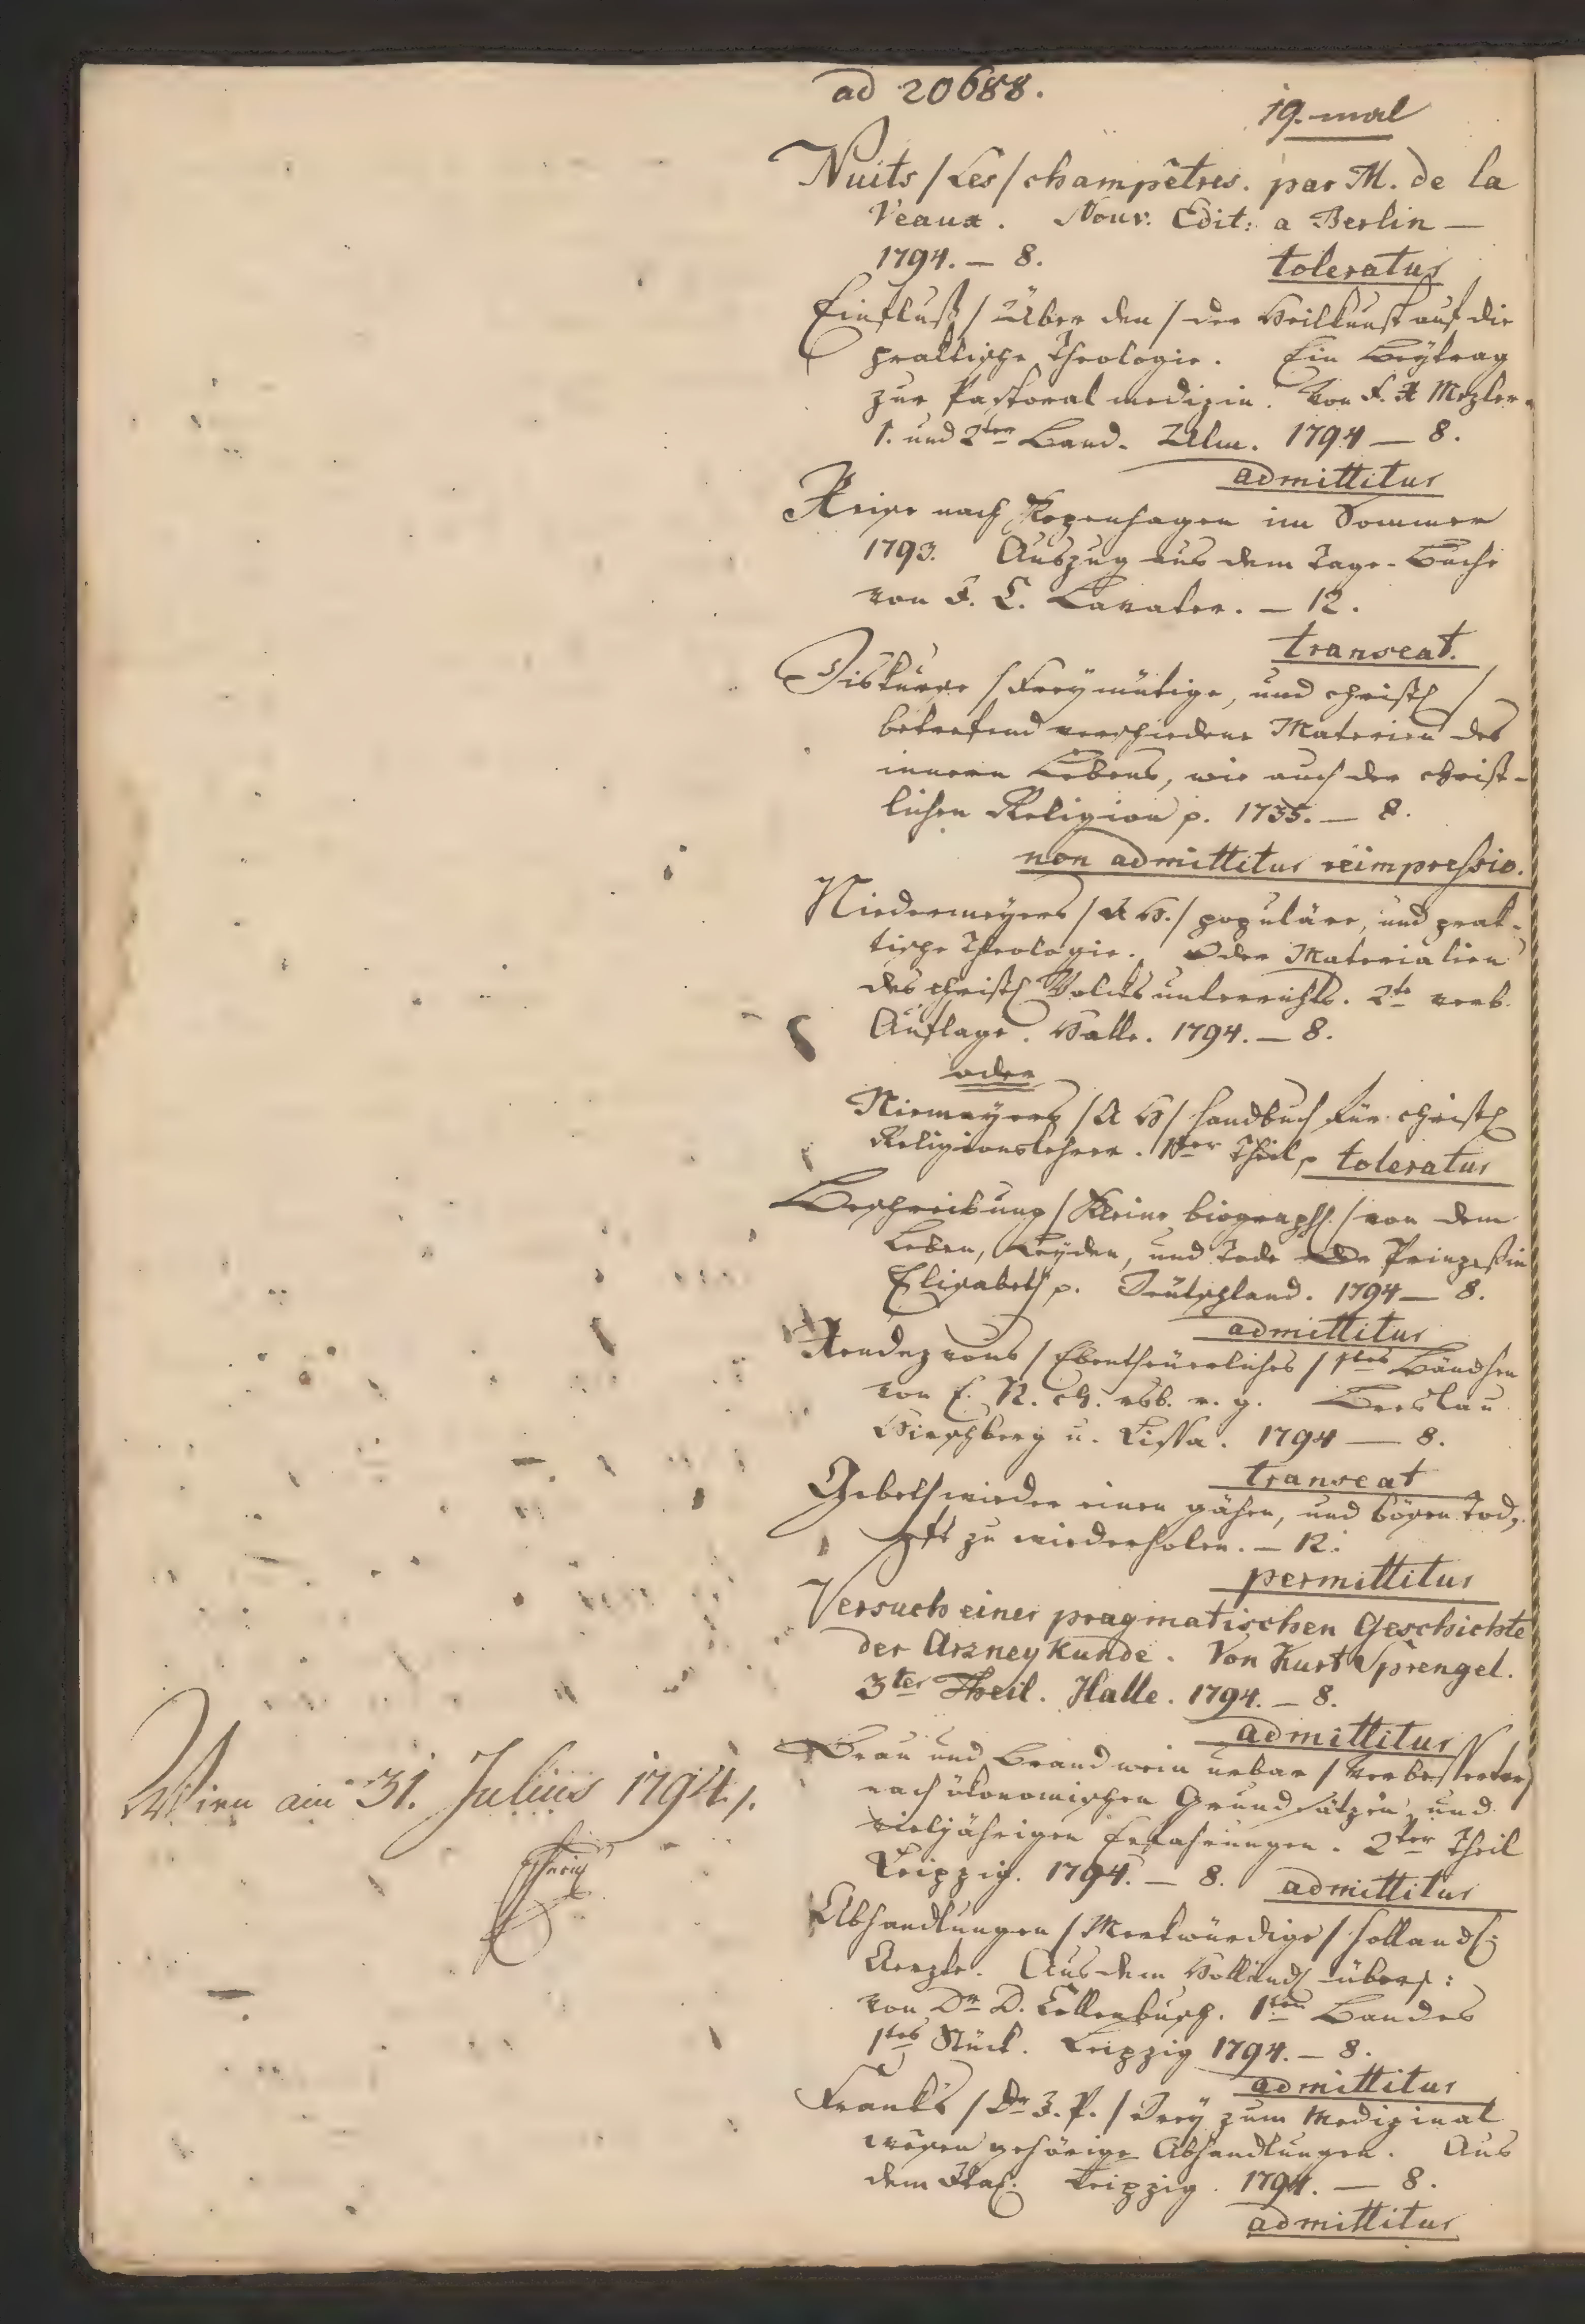 ad 20688.
19. mal
Nuits / Les / champêtres. par M. de la
Veaux. Nouv: Edit: a Berlin —
1794. — 8.
toleratur
Einfluß / Über den / der Heilkunst auf die
praktische Theologie. Ein Beytrag
zur Pastoral medizin. Von F. X Mezler.
1. und 2ter Band. Ulm. 1794 — 8.
admittitur
Reise nach Kopenhagen im Sommer
1793. Auszug aus dem Tage-Buche
von J. C. Lavater. — 12.
transeat.
Diskurse / Freymütige, und christl /
betrefend verschiedene Materien des
innern Lebens, wie auch der christ-
lichen Religion p. 1735. — 8.
non admittitur reimpressio.
Niedermeyers / A H. / populäre, und prak-
tische Theologie. Oder Materialien
des christl Volcksunterrichts. 2te verb.
Auflage. Halle. 1794. — 8.
oder
Niemeyers / A H / Handbuch für christl
Religionslehrer. 1ter Theil p toleratur
Beschreibung / Kleine biograph. / von dem
Leben, Leyden, und Tode der Prinzeßin
Elisabeth p. Teutschland. 1794 — 8.
admittitur
Rendezvous / Ebentheuerliches / 1tes Bändchen
von E. N. Breslau
Hirschberg u. Lissa. 1794 — 8.
transeat
Gebeth wieder einen gähen, und bösen Tod,
oft zu wiederholen. — 12.
permittitur
Versuch einer pragmatischen Geschichte
der Arzneykunde. Von Kurt Sprengel.
3ter Theil. Halle. 1794. — 8.
admittitur
Brau und Brandwein urbar / Verbesserter /
nach ökonomischen Grundsätzen, und
vieljährigen Erfahrungen. 2ter Theil
Leipzig. 1794. — 8. admittitur
Abhandlungen / Merkwürdige / holländ:
Aerzte. Aus dem Holländ übers:
von Dr D. Collenbusch. 1ten Bandes
1tes Stück. Leipzig 1794. — 8.
admittitur
Franks / Dr J. P. / Drey zum Medizinal
wesen gehörige Abhandlungen. Aus
dem Ital. Leipzig. 1794. — 8.
admittitur
Wien am 31. Julius 1794.